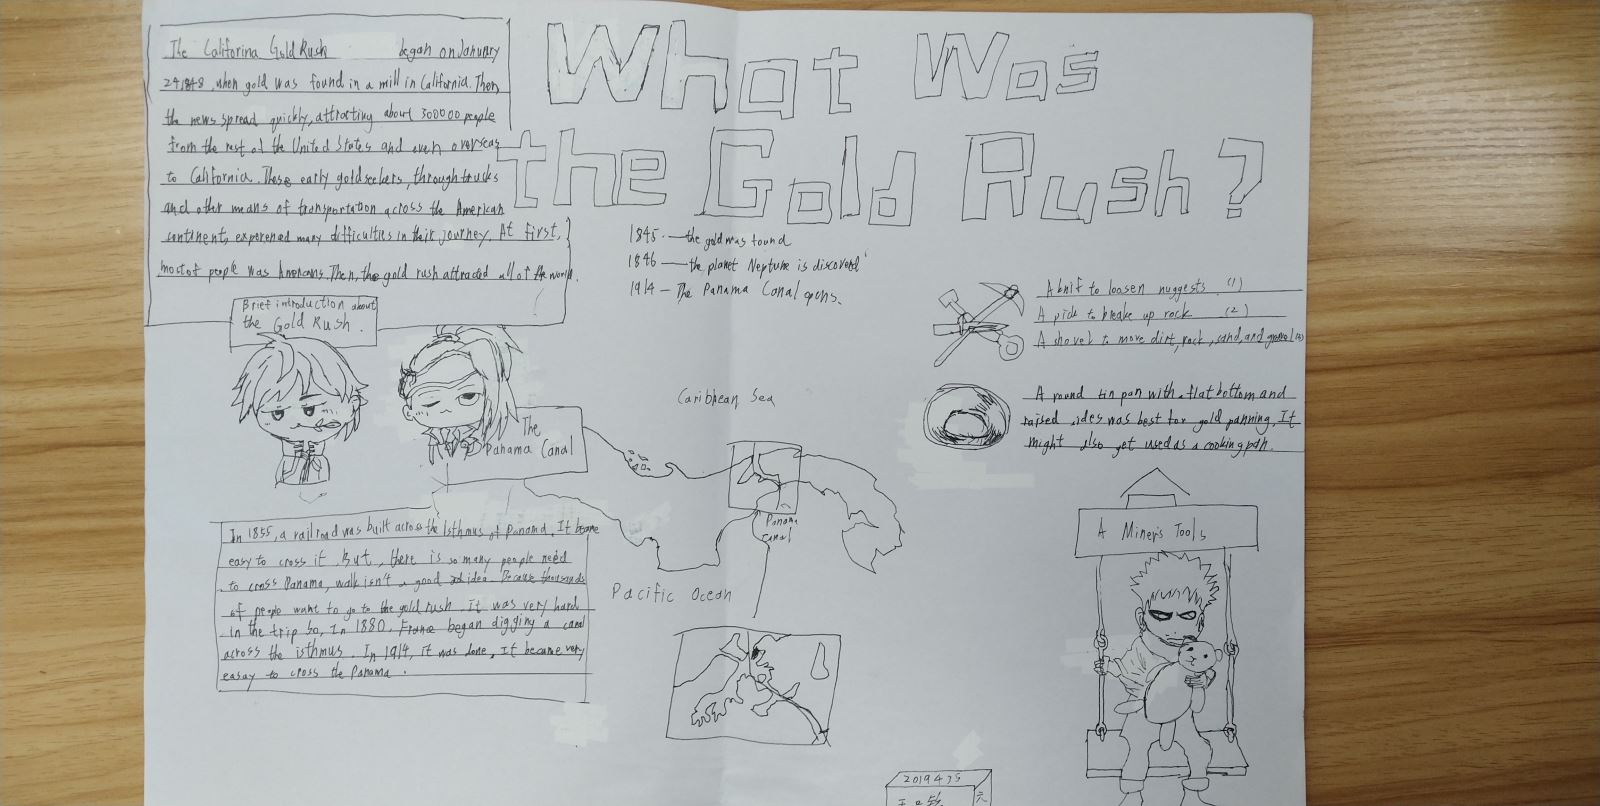 What Was
the Gold Rush?
The Califorina Gold Rush began on January
24 1848, when gold was found in a mill in California. Then
the news spread quickly, attracting about 300000 people
from the rest of the United States and even overseas
to California. These early goldseekers, through trucks
and other means of transportation across the American
continent, experenced many difficulties in their journey. At first,
most of people was Americans. Then, the gold rush attracted all of the world.
Brief introduction about
the Gold Rush.
1845 — the gold was found
1846 — the planet Neptune is discovered
1914 — The Panama Canal opens.
A knif to loosen nuggests (1)
A pick to break up rock (2)
A shovel to move dirt, rock, sand, and gravel (3)
A round tin pan with a flat bottom and
raised sides was best for gold panning. It
might also get used as a cooking pan.
Caribbean Sea
The
Panama Canal
Panama
Canal
Pacific Ocean
In 1855, a railroad was built across the Isthmus of Panama. It became
easy to cross it. But, there is so many people need
to cross Panama, walk isn't a good idea. Because thousands
of people want to go to the gold rush. It was very hard
in the trip. So, In 1880, France began digging a canal
across the isthmus. In 1914, it was done. It became very
easay to cross the Panama.
A Miner's Tools
2019475